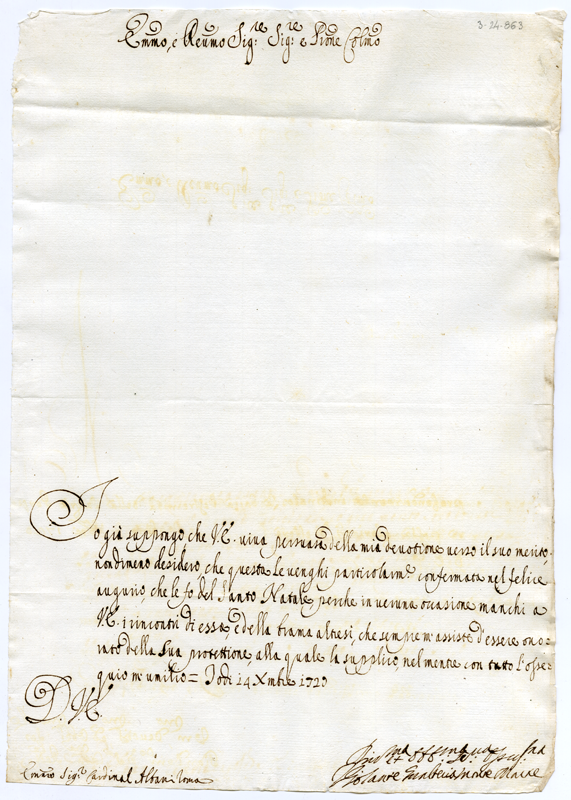 3-24-863
Emmo, è Reumo Sig:re Sig:re e Prone Colmo
Io già suppongo che V.E. viva persuasa della mia devotione verso il suo merito,
nondimeno desidero, che questa Le venghi particolarme. confermata nel felice
augurio, che le fo del Santo Natale, perche in veruna occasione manchi a
V.E. i rincontri di essa, e della brama altresi, che sempre m'assiste d'essere ono=
rato della Sua protettione, alla quale la supplico, nel mentre con tutto l'osse=
quio m'umilio = Todi 14 Xmbre 1720
D. V.E.
Emmo Sig:r Cardinal Albani Roma